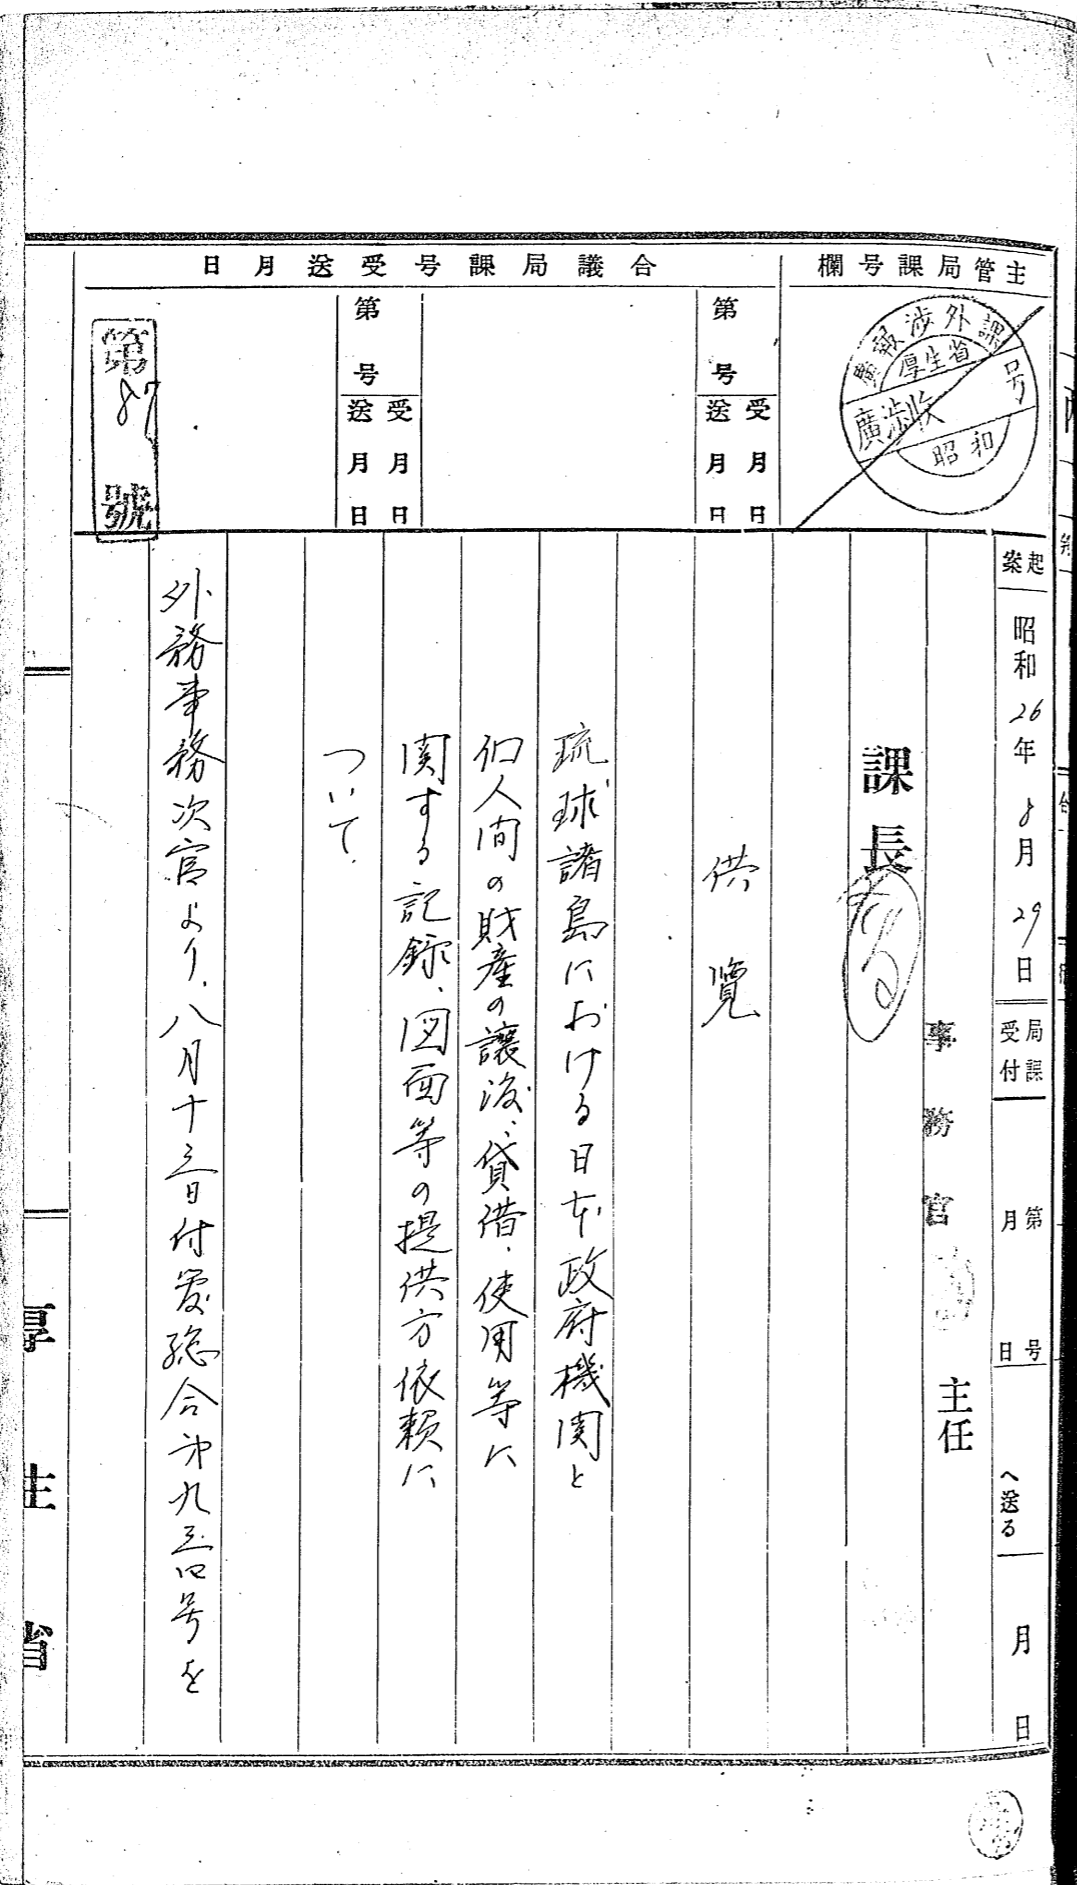 主管局課号欄
合議局課号受送月日
廣報渉外課
厚生省
廣渉收 号
昭和
第 号
受 月 日
送 月 日
第 号
受 月 日
送 月 日
第87號
起案
昭和26年8月29日
局課受付
第 号
月 日
へ送る
月 日
事務官
主任
課長
供覽
琉球諸島における日本政府機関と
個人間の財産の譲渡、貸借、使用等に
関する記録、図面等の提供方依頼に
ついて、
外務事務次官より、八月十三日付 総合第九三四号を
厚生省